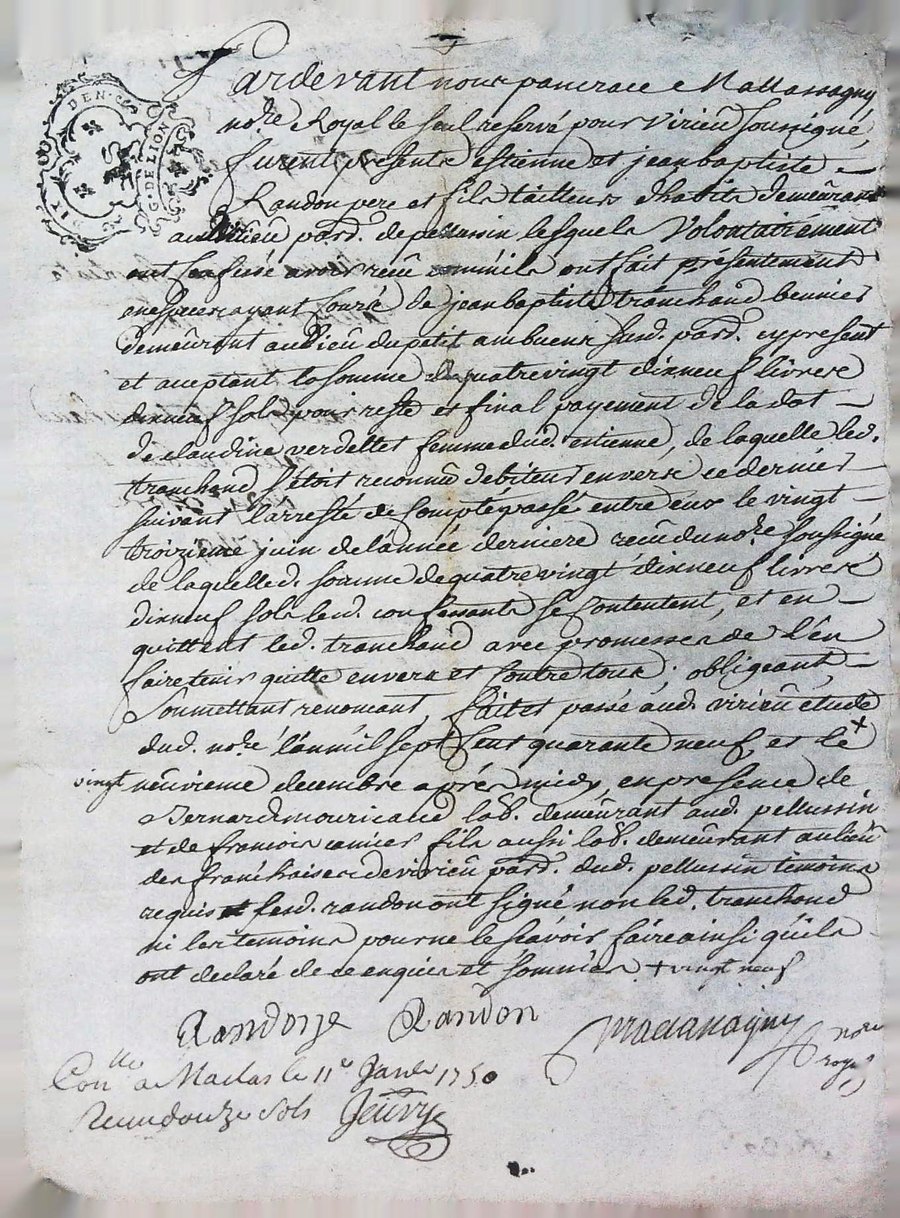 DEN. C
G. DE LION
Pardevant nous pancrace Mattassagny
no.re Royal le seul reservé pour Virieu soussigné,
furent presents estienne et jean baptiste
Randon pere et fils tailleurs d'habits demeurans
au Virieu parr. de pellussin lesquels Volontairement
ont confessé avoir reçû comme ils ont fait presentement
en especes ayant cours de jean baptiste tranchand
demeurant au lieu du petit ambueux susd. parr. cy present
et aceptant la somme de quatre vingt dixneuf livres
dixneuf sols pour reste et final payement de la dot
de claudine verdellet femme dud. estienne, de laquelle led.
tranchand s'étoit reconnû debiteur envers ce dernier
suivant l'arresté de compte passé entre eux le vingt
troizieme juin de l'année derniere reçû du no.re soussigné
de laquelle d. somme de quatre vingt dixneuf livres
dixneuf sols lesd. confessants se contentent, et en
quittent led. tranchand avec promesses de l'en
faire tenir quitte envers et contre tous; obligeant,
soumettant renonçant, fait et passé aud. virieû étude
dud. no.re l'an mil sept cent quarante neuf, et le +
vingt neuvieme decembre aprés midy, en presence de
Bernard mouricaud lab. demeurant aud. pellussin
et de francois camier fils aussi lab. demeurant au lieu
des franchises de virieu parr. dud. pellussin temoins
requis lesd. randon ont signé non led. tranchand
ni les temoins pour ne le sçavoir faire ainsi qu'ils
ont declaré de ce enquis et sommés + vingt neuf
Randon Randon
no.re
royal
Con.lle a Maclas le 11e Janv. 1750
Recu douze sols Jeury